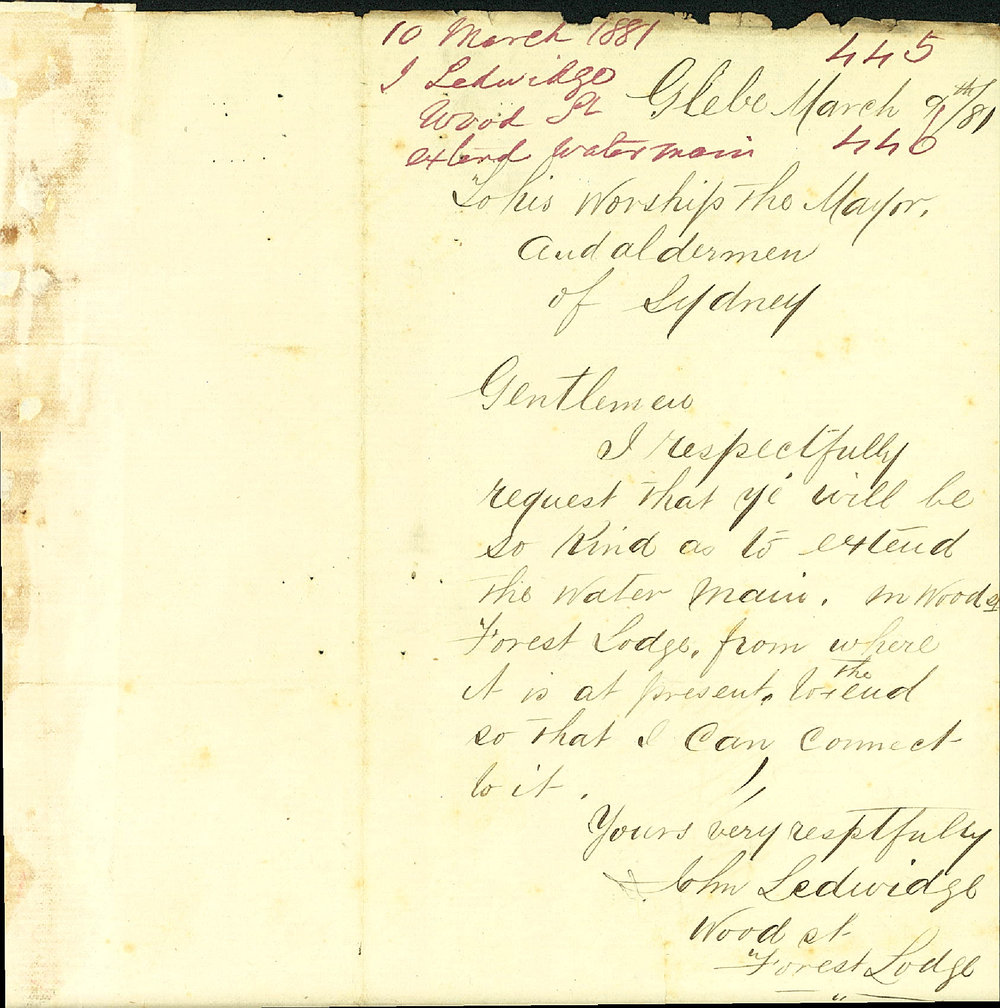 10 March 1881
J Ledwidge
Wood St
extend watermain
445
446
Glebe March 9th/81
To his Worship the Mayor.
and aldermen
of Sydney
Gentlemen
I respectfully
request that ye will be
so Kind as to extend
the water main. in Wood st
Forest Lodge. from where
it is at present. to the end
so that I Can Connect
to it.
Yours very resptfully
John Ledwidge
Wood st
Forest Lodge